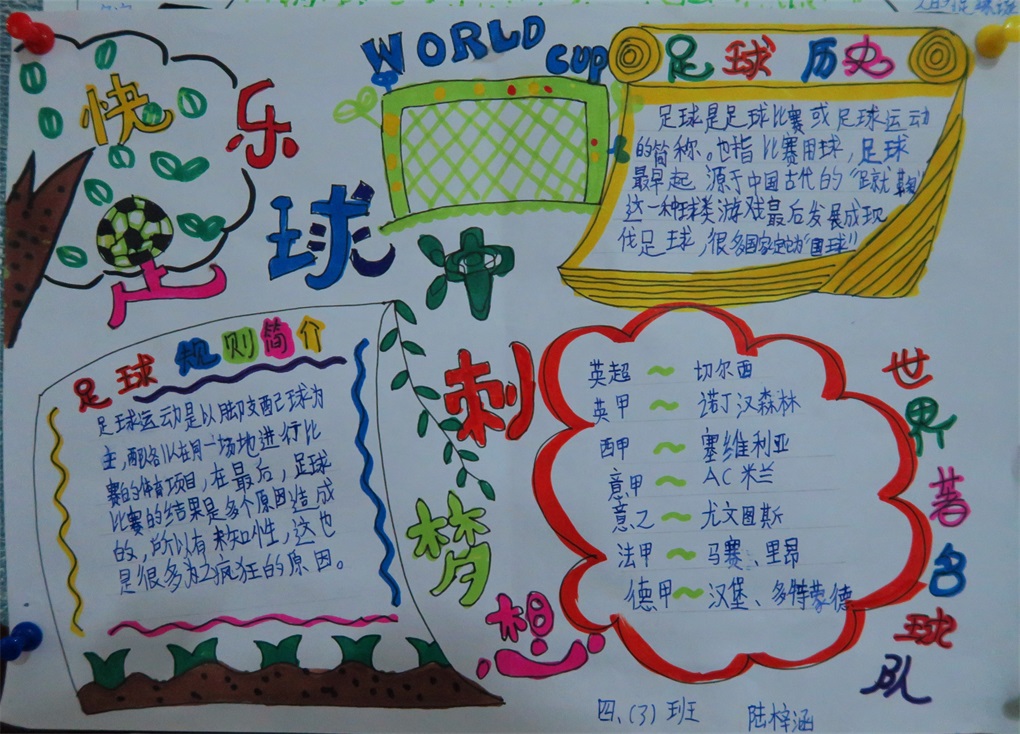 快乐足球
WORLD CUP
冲刺梦想
足球历史
足球是足球比赛或足球运动
的简称。也指比赛用球，足球
最早起源于中国古代的“蹴鞠”
这一种球类游戏最后发展成现
代足球，很多国家定它为“国球”
足球规则简介
足球运动是以脚支配球为
主，两队在同一场地进行比
赛的体育项目，在最后，足球
比赛的结果是多个原因造成
的，所以有未知性，这也
是很多为之疯狂的原因。
英超～切尔西
英甲～诺丁汉森林
西甲～塞维利亚
意甲～AC米兰
意乙～尤文图斯
法甲～马赛、里昂
德甲～汉堡、多特蒙德
世界著名球队
四、(3)班 陆梓涵